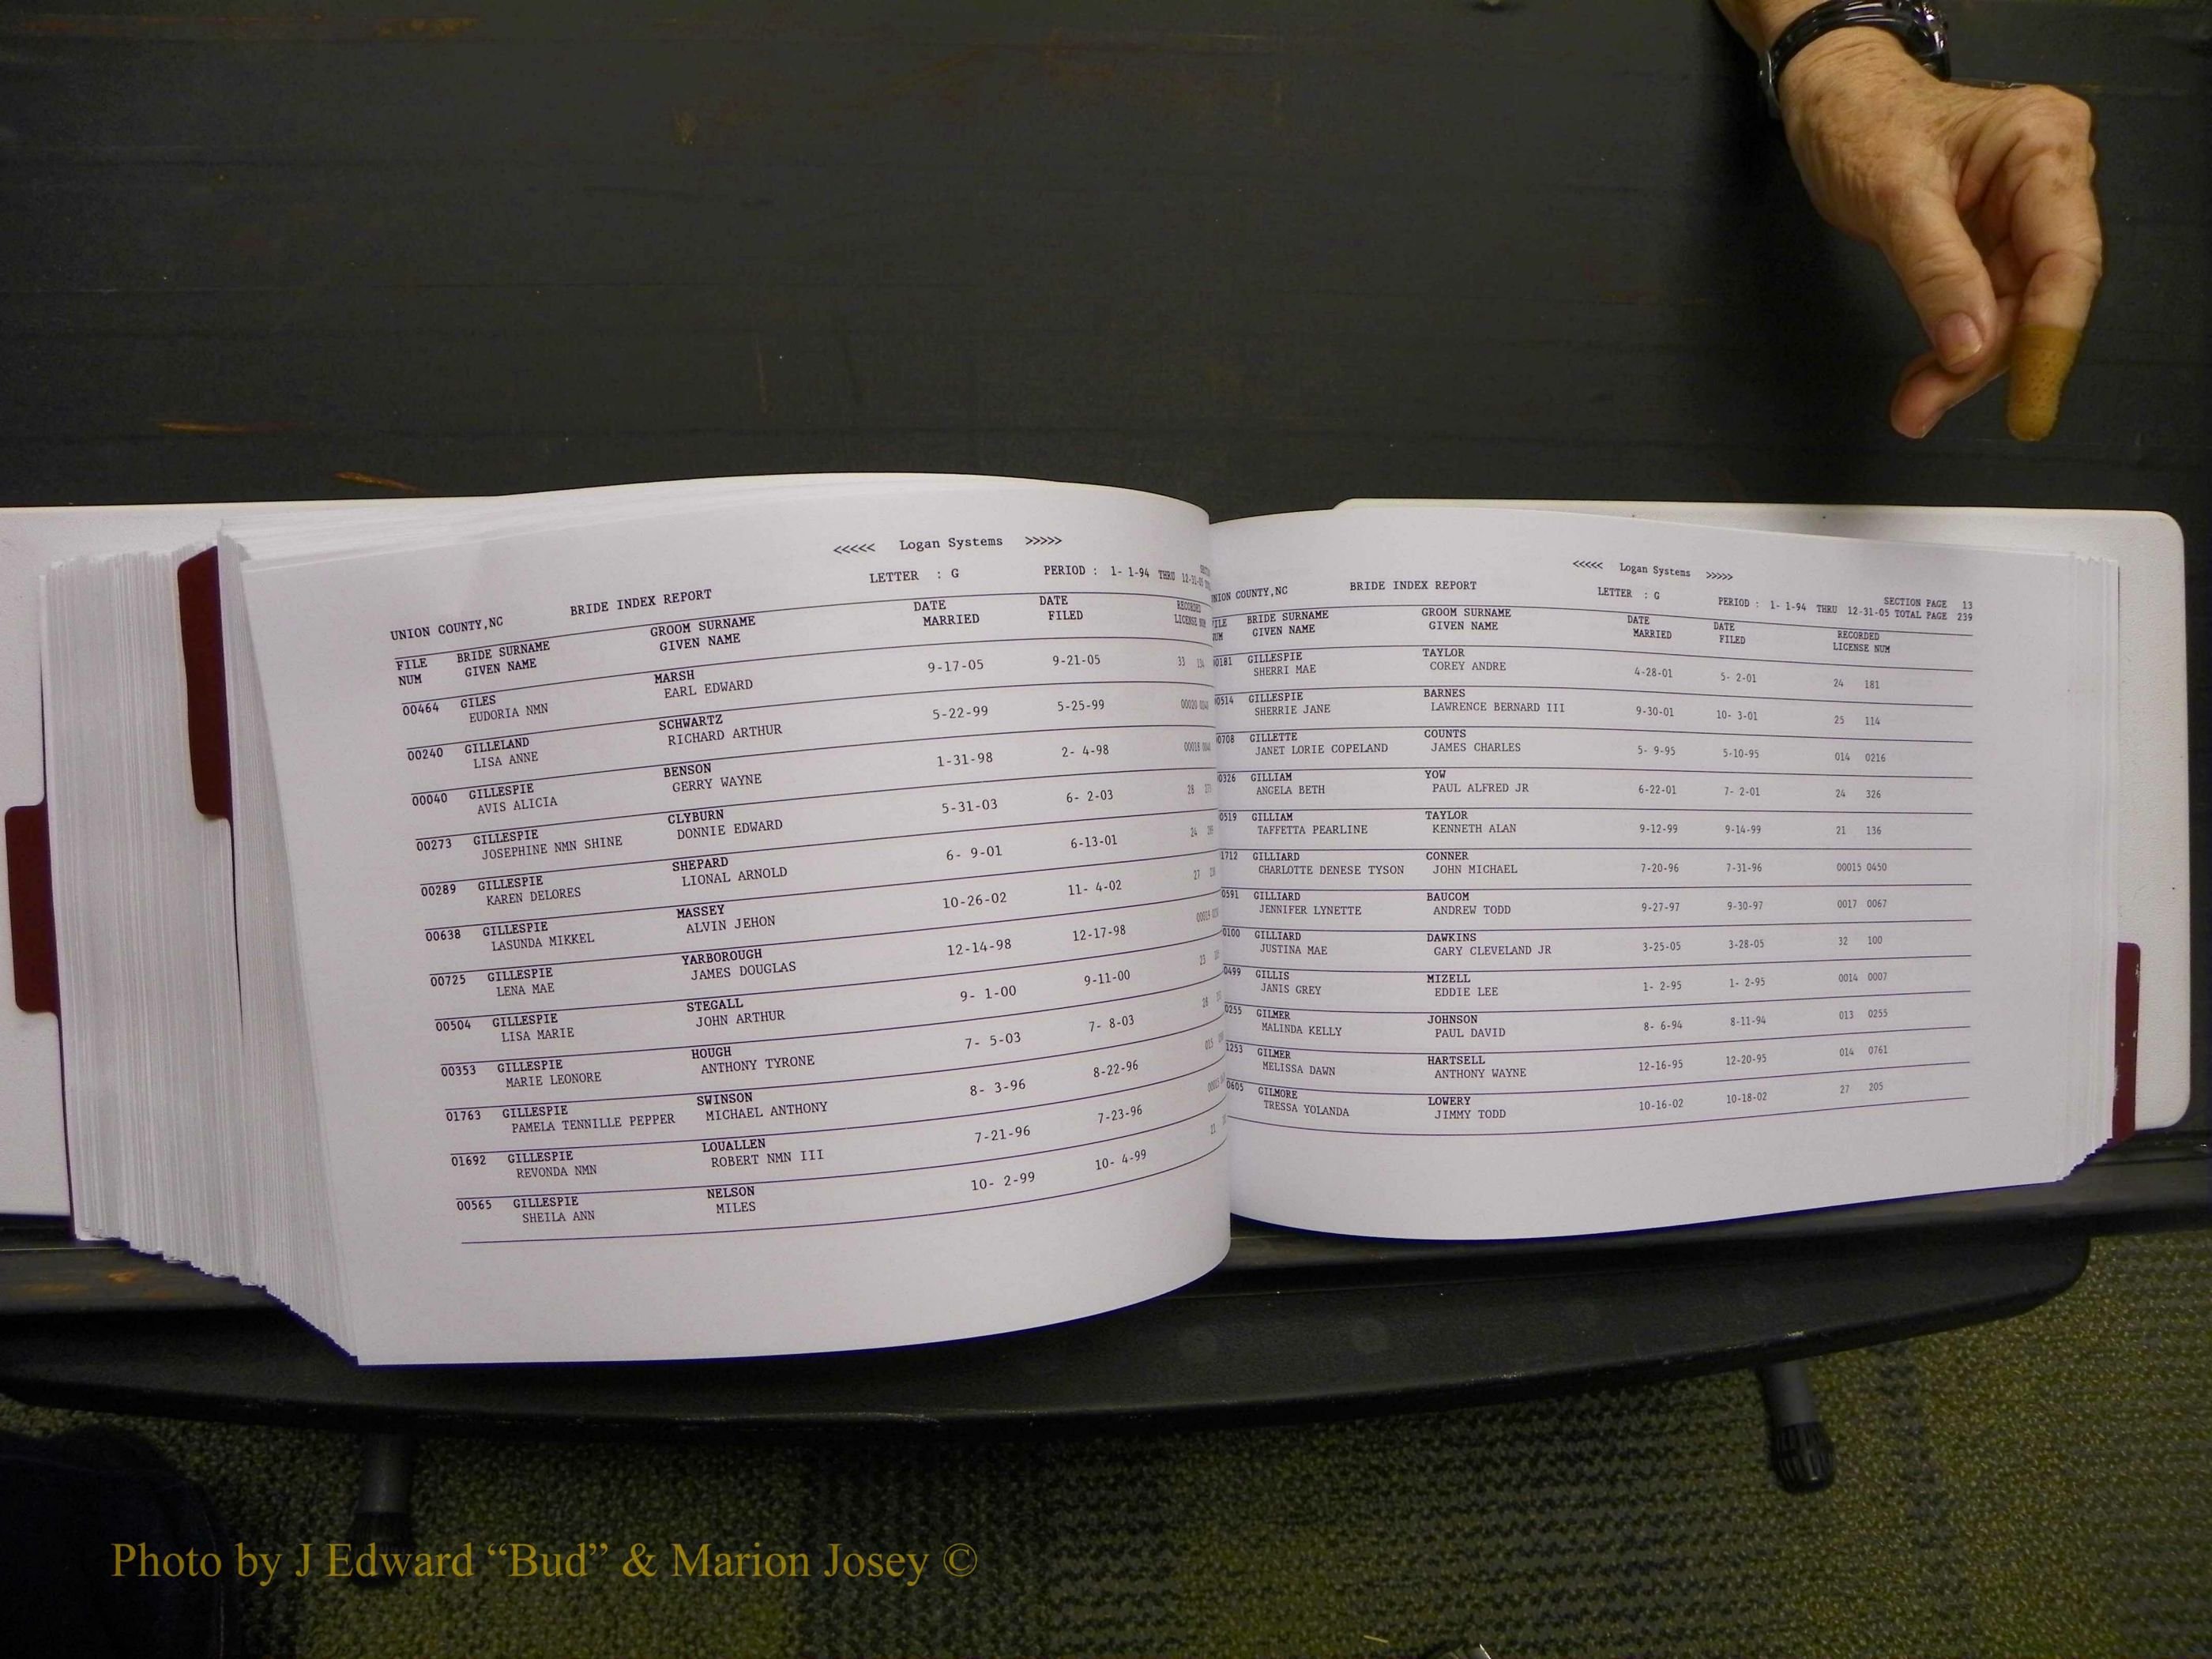 <<<<< Logan Systems >>>>>
UNION COUNTY,NC BRIDE INDEX REPORT LETTER : G PERIOD : 1- 1-94 THRU
FILE BRIDE SURNAME GROOM SURNAME DATE DATE RECORDED
NUM GIVEN NAME GIVEN NAME MARRIED FILED LICENSE NUM
00464 GILES MARSH 9-17-05 9-21-05 33
EUDORIA NMN EARL EDWARD
00240 GILLELAND SCHWARTZ 5-22-99 5-25-99 00020
LISA ANNE RICHARD ARTHUR
00040 GILLESPIE BENSON 1-31-98 2- 4-98 00018
AVIS ALICIA GERRY WAYNE
00273 GILLESPIE CLYBURN 5-31-03 6- 2-03 28
JOSEPHINE NMN SHINE DONNIE EDWARD
00289 GILLESPIE SHEPARD 6- 9-01 6-13-01 24
KAREN DELORES LIONAL ARNOLD
00638 GILLESPIE MASSEY 10-26-02 11- 4-02 27
LASUNDA MIKKEL ALVIN JEHON
00725 GILLESPIE YARBOROUGH 12-14-98 12-17-98
LENA MAE JAMES DOUGLAS
00504 GILLESPIE STEGALL 9- 1-00 9-11-00 23
LISA MARIE JOHN ARTHUR
00353 GILLESPIE HOUGH 7- 5-03 7- 8-03 28
MARIE LEONORE ANTHONY TYRONE
01763 GILLESPIE SWINSON 8- 3-96 8-22-96 015
PAMELA TENNILLE PEPPER MICHAEL ANTHONY
01692 GILLESPIE LOUALLEN 7-21-96 7-23-96
REVONDA NMN ROBERT NMN III
00565 GILLESPIE NELSON 10- 2-99 10- 4-99 21
SHEILA ANN MILES
<<<<< Logan Systems >>>>>
NION COUNTY,NC BRIDE INDEX REPORT LETTER : G SECTION PAGE 13
PERIOD : 1- 1-94 THRU 12-31-05 TOTAL PAGE 239
FILE BRIDE SURNAME GROOM SURNAME DATE DATE RECORDED
NUM GIVEN NAME GIVEN NAME MARRIED FILED LICENSE NUM
00181 GILLESPIE TAYLOR 4-28-01 5- 2-01 24 181
SHERRI MAE COREY ANDRE
00514 GILLESPIE BARNES 9-30-01 10- 3-01 25 114
SHERRIE JANE LAWRENCE BERNARD III
00708 GILLETTE COUNTS 5- 9-95 5-10-95 014 0216
JANET LORIE COPELAND JAMES CHARLES
0326 GILLIAM YOW 6-22-01 7- 2-01 24 326
ANGELA BETH PAUL ALFRED JR
0519 GILLIAM TAYLOR 9-12-99 9-14-99 21 136
TAFFETTA PEARLINE KENNETH ALAN
1712 GILLIARD CONNER 7-20-96 7-31-96 00015 0450
CHARLOTTE DENESE TYSON JOHN MICHAEL
0591 GILLIARD BAUCOM 9-27-97 9-30-97 0017 0067
JENNIFER LYNETTE ANDREW TODD
0100 GILLIARD DAWKINS 3-25-05 3-28-05 32 100
JUSTINA MAE GARY CLEVELAND JR
0499 GILLIS MIZELL 1- 2-95 1- 2-95 0014 0007
JANIS GREY EDDIE LEE
0255 GILMER JOHNSON 8- 6-94 8-11-94 013 0255
MALINDA KELLY PAUL DAVID
1253 GILMER HARTSELL 12-16-95 12-20-95 014 0761
MELISSA DAWN ANTHONY WAYNE
0605 GILMORE LOWERY 10-16-02 10-18-02 27 205
TRESSA YOLANDA JIMMY TODD
Photo by J Edward “Bud” & Marion Josey ©